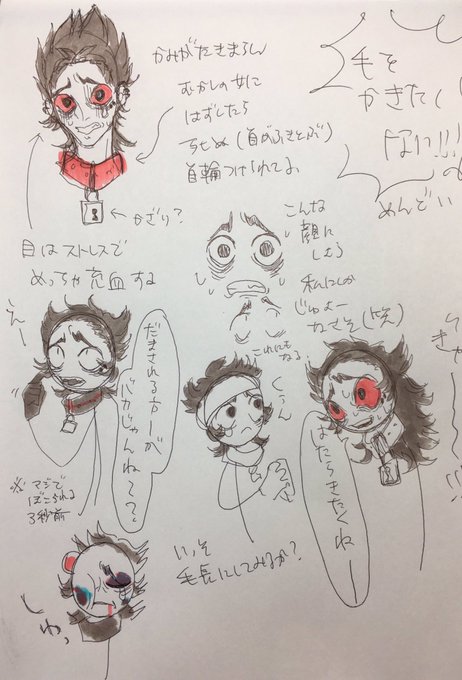 かみがたきまらん
むかしの女に
はずしたら
ちしぬ(首がふきとぶ)
首輪つけられてる
←かざり?
目はストレスで
めっちゃ充血する
毛を
かきたい
なに!!!
めんどい
こんな
顔に
しむら
私にしか
じゅよー
なさそ(笑)
これにもなる
えー
だまされる方が
バカじゃんね〜?
※マジで
ぼこられる
3秒前
くぅん
はたらきたくねー
いっそ
毛長にしてみるか?
きゃ〜
しゅっ